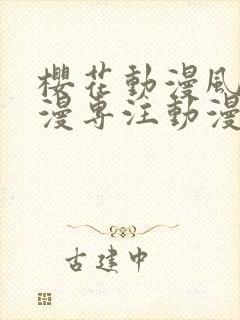 櫻花動漫風
漫專注動漫
古建中